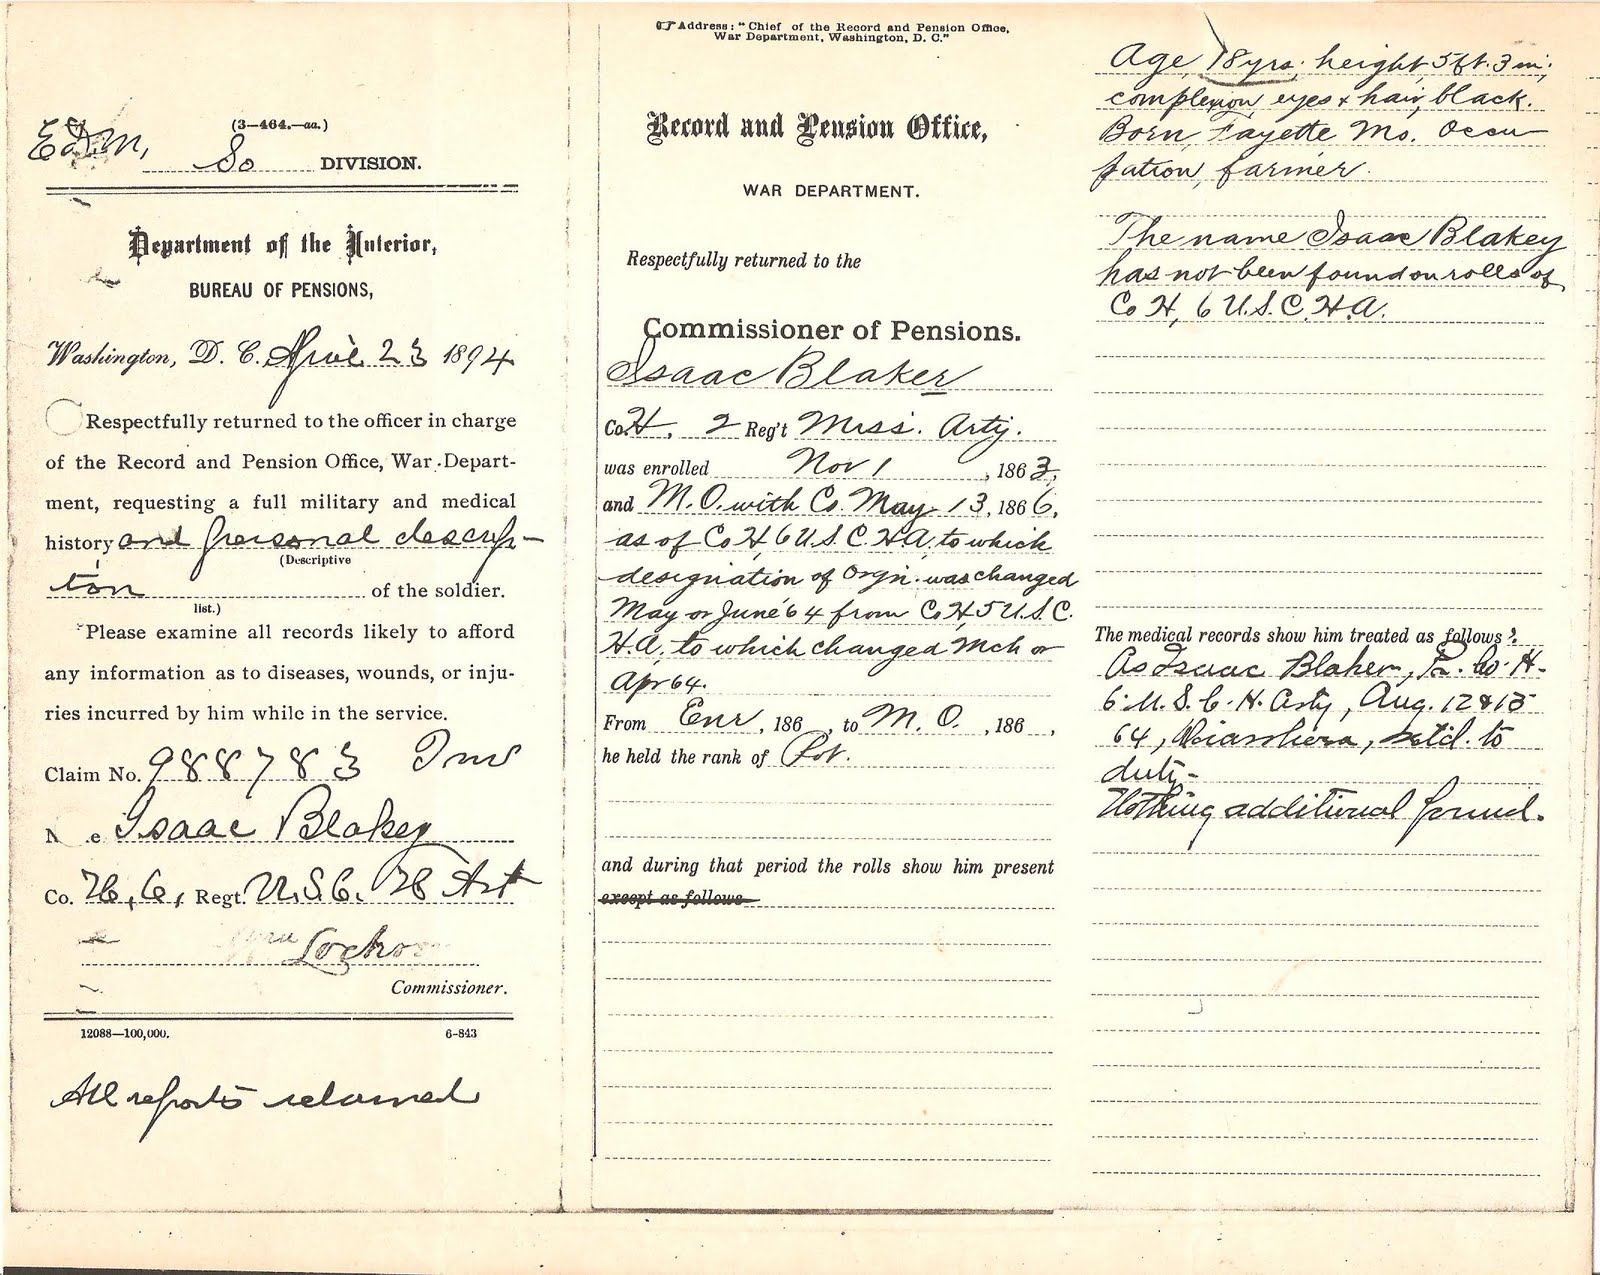 (3—464.—aa.)
E.D.M., So DIVISION.
Department of the Interior,
BUREAU OF PENSIONS,
Washington, D. C. April 23 1894
Respectfully returned to the officer in charge
of the Record and Pension Office, War Depart-
ment, requesting a full military and medical
history and personal descrip-
(Descriptive
tion of the soldier.
list.)
Please examine all records likely to afford
any information as to diseases, wounds, or inju-
ries incurred by him while in the service.
Claim No. 988783 Inv
N e Isaac Blakey
Co. H, 6, Regt. U.S.C. H Art
Lochren
Commissioner.
12088—100,000. 6-843
All reports returned
Address: "Chief of the Record and Pension Office,
War Department, Washington, D. C."
Record and Pension Office,
WAR DEPARTMENT.
Respectfully returned to the
Commissioner of Pensions.
Isaac Blaker
Co. H, 2 Reg't Miss. Arty.
was enrolled Nov 1, 1863,
and M.O. with Co. May 13, 1866,
as of Co H, 6 U.S.C.H.A. to which
designation of Orgn. was changed
May or June 64 from Co H, 5 U.S.C.
H.A. to which changed Mch or
Apr 64.
From Enr, 186 , to M.O., 186 ,
he held the rank of Pvt.
and during that period the rolls show him present
except as follows
Age, 18 yrs; height, 5 ft. 3 in;
complexion, eyes & hair, black.
Born, Fayette Mo. Occu
pation, farmer.
The name Isaac Blakey
has not been found on rolls of
Co H, 6 U.S.C.H.A.
The medical records show him treated as follows:
As Isaac Blaker, Pr. Co. H-
6. U.S.C.H. Arty, Aug. 12 & 13
64, Diarrhoea, retd. to
duty-
Nothing additional found.